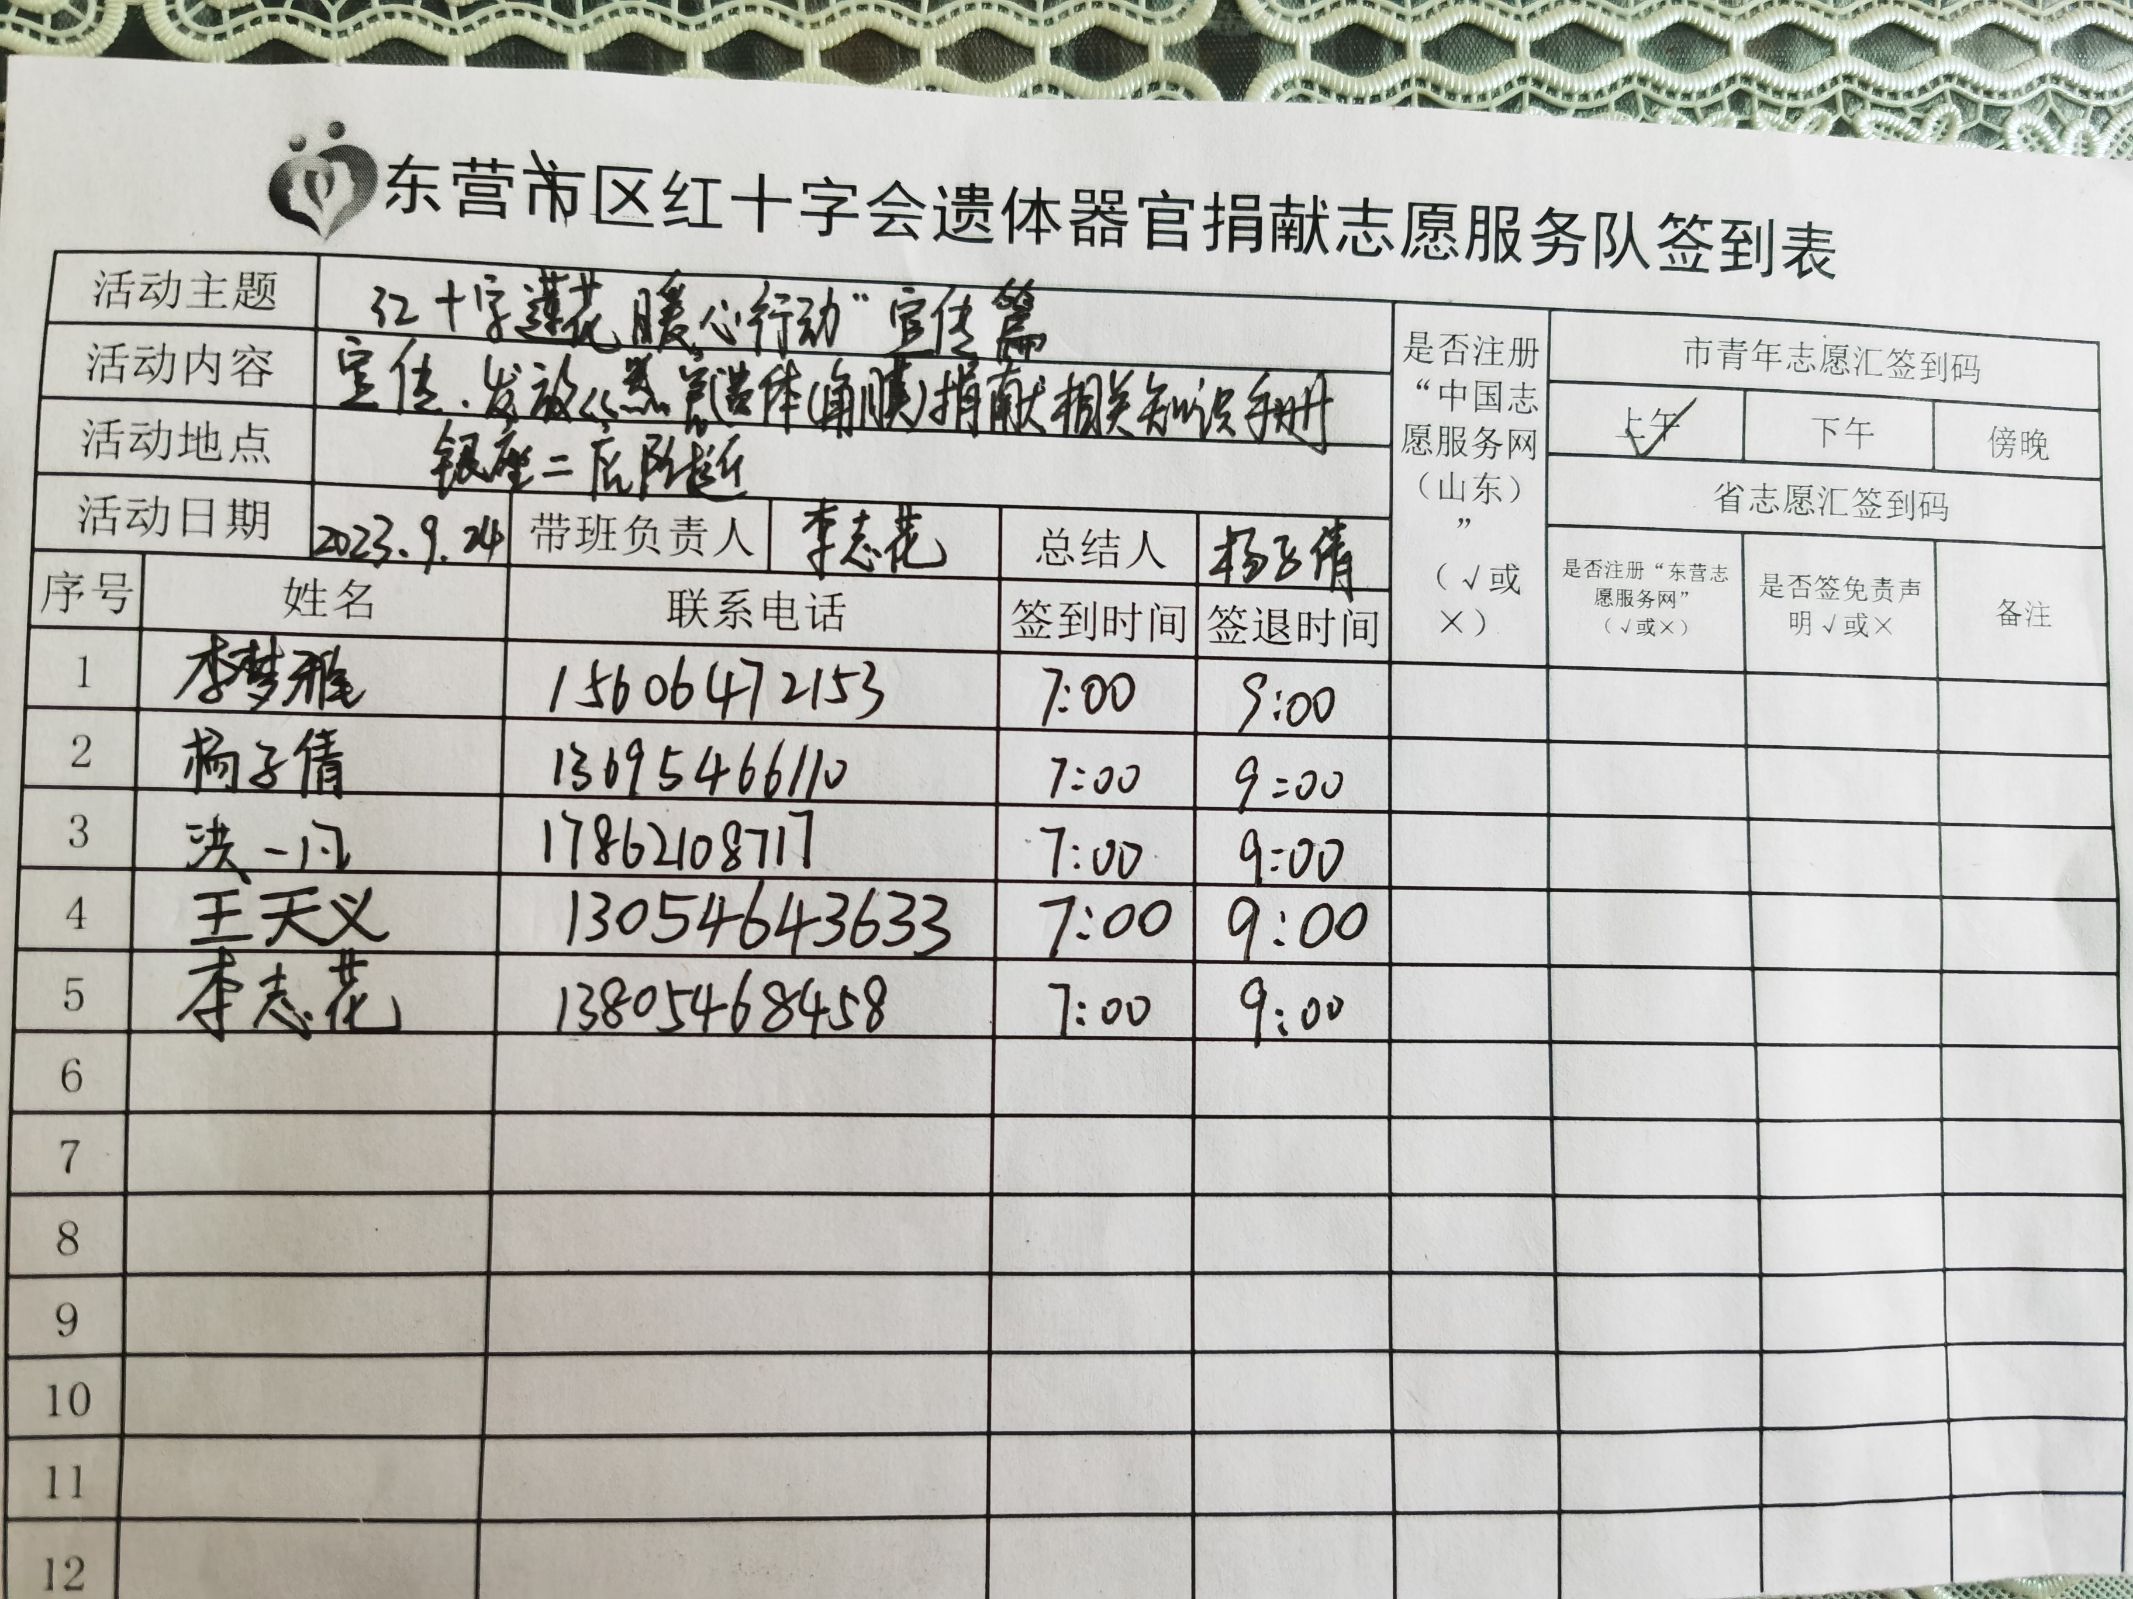 东营市区红十字会遗体器官捕献志愿服务队签到表
活动主题 红十字莲花暖心行动"宣传篇
活动内容 宣传、发放 遗体(角膜)捐献相关知识手册
活动地点 银座二店附近
活动日期 2023.9.24 带班负责人 李志花 总结人 杨子倩
是否注册“中国志愿服务网（山东）”（√或×）
市青年志愿汇签到码
上午√ 下午 傍晚
省志愿汇签到码
是否注册“东营志愿服务网”（√或×） 是否签免责声明√或× 备注
序号 姓名 联系电话 签到时间 签退时间
1 李梦雅 15606472153 7:00 9:00
2 杨子倩 13695466110 7:00 9:00
3 洪一凡 17862108717 7:00 9:00
4 王天义 13054643633 7:00 9:00
5 李志花 13805468458 7:00 9:00
6
7
8
9
10
11
12